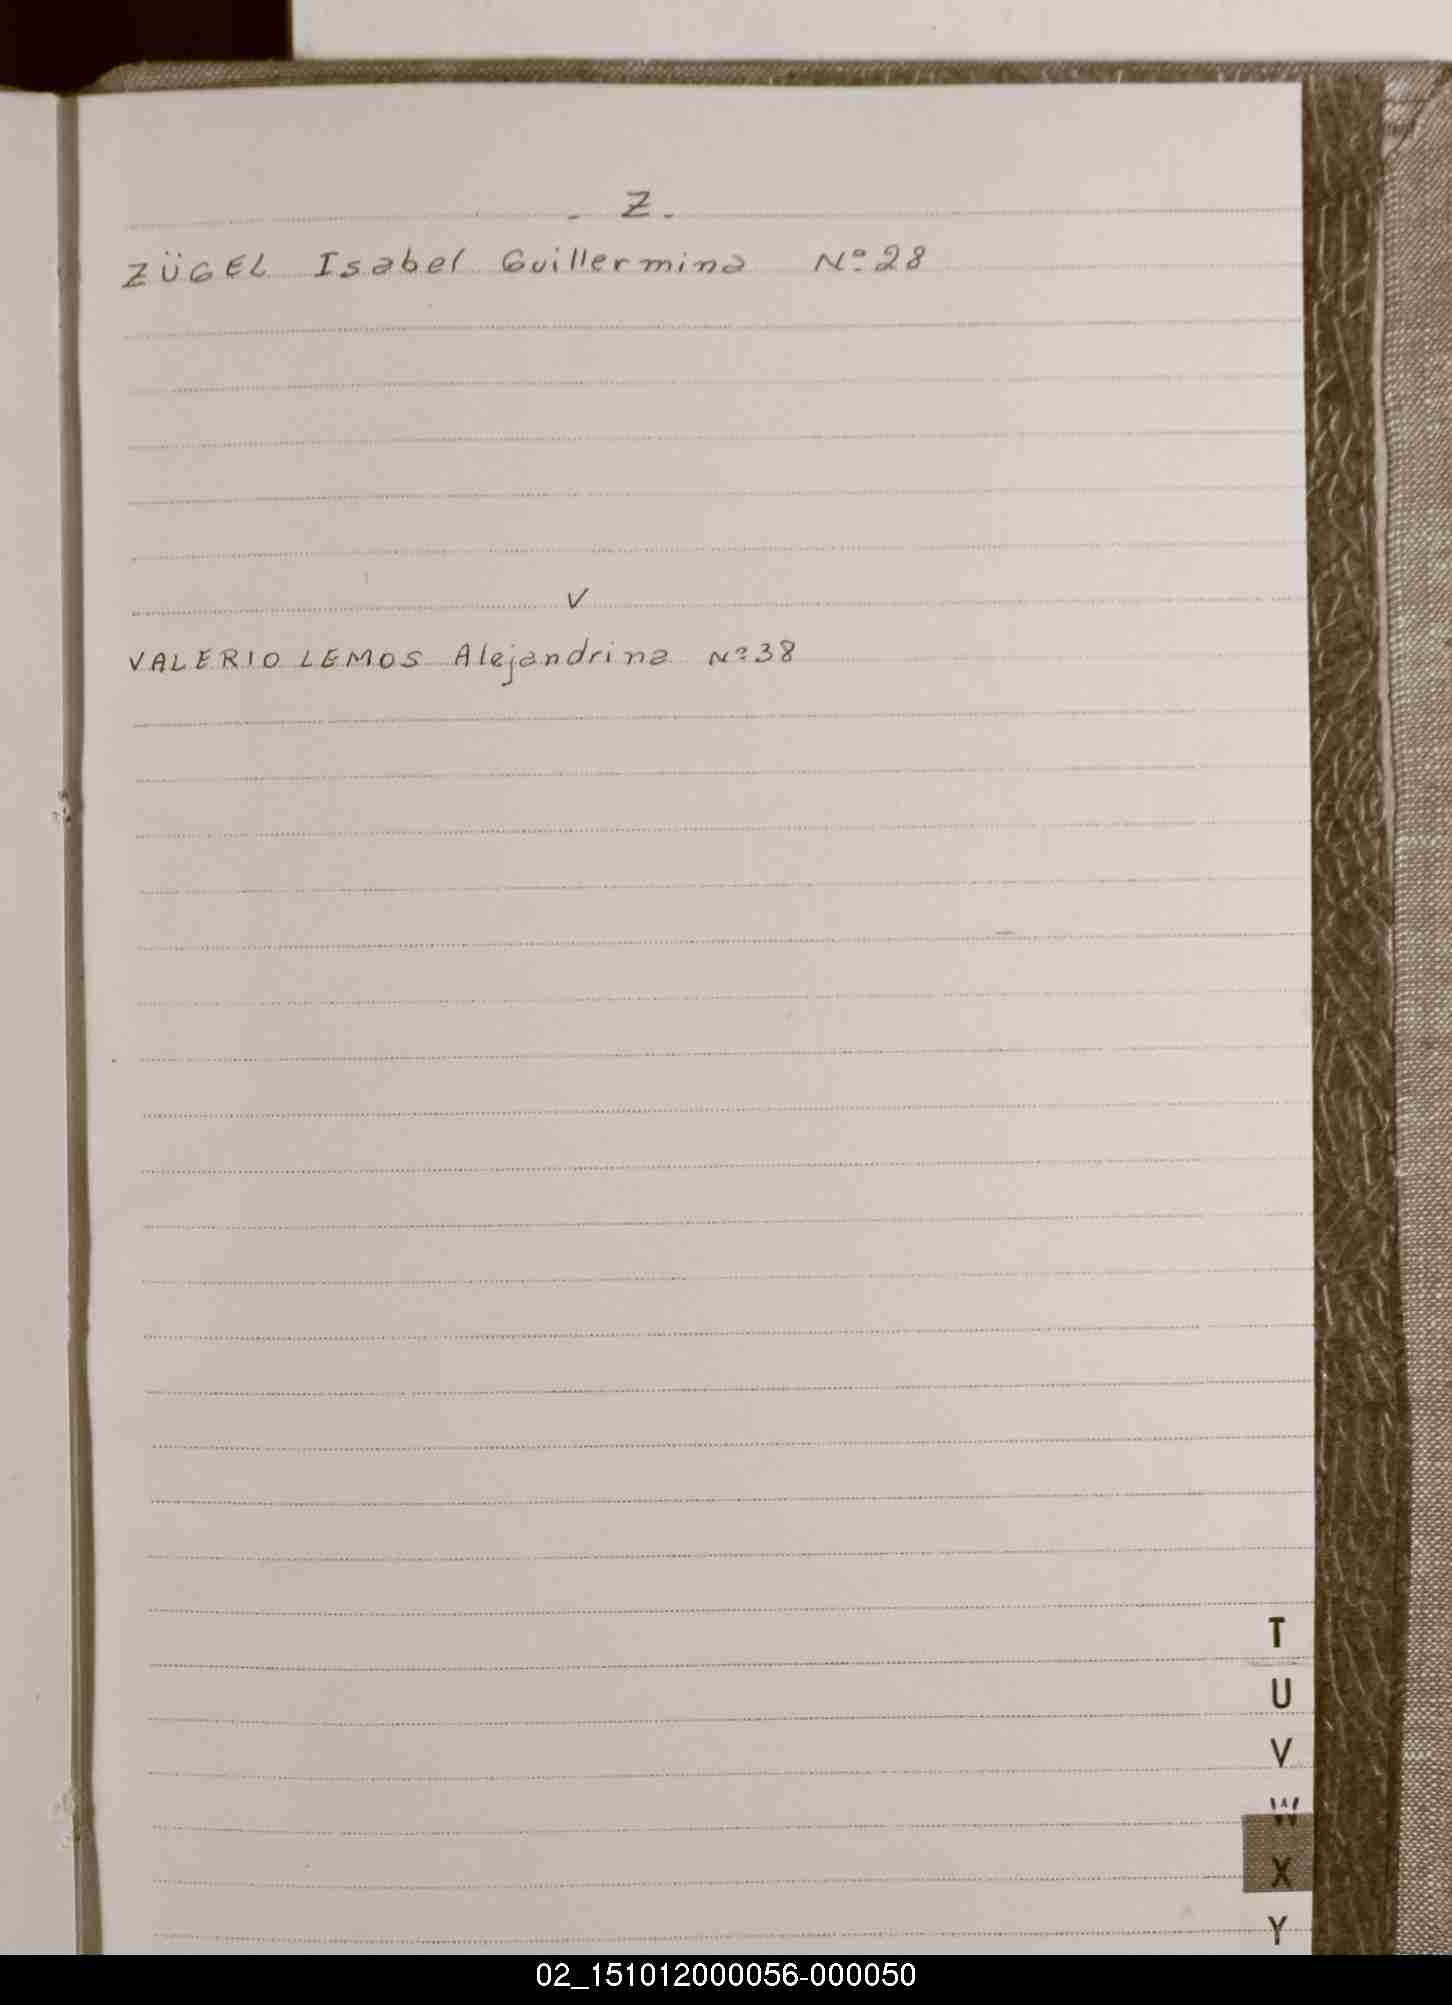 - Z -
ZÜGEL Isabel Guillermina Nº 28
V
VALERIO LEMOS Alejandrina Nº 38
T
U
V
W
X
Y
02_151012000056-000050